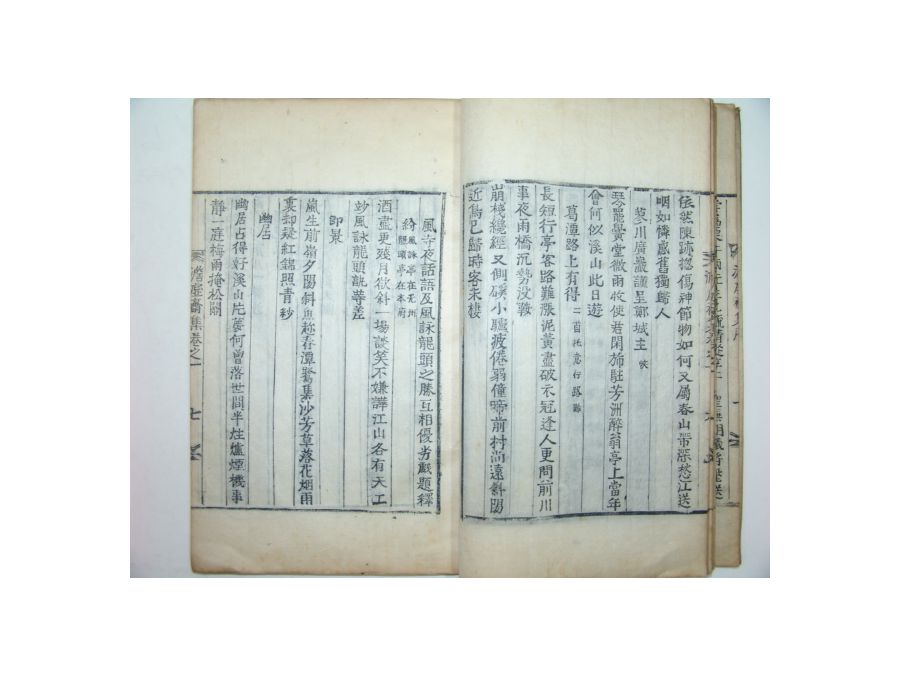 依然陳跡摠傷神節物如何又屬春山帶架愁江送
明如憐感舊獨歸人
芰川廣巖謹呈鄭城主
琴罷黌堂微雨收使君閑斾駐芳洲醉翁亭上當年
會何似溪山此日遊
葛潭路上有得 二首托意行路難
長短行亭客路難漲泥黃盡破衣冠逢人更問前川
事夜雨橋沉勢沒鞍
崩棧纔經又側磎小驢疲倦弱僮啼前村尚遠斜陽
近烏已歸時客未棲
風寺夜話語及風詠龍頭之勝互相優劣戲題釋
紛 風詠亭在光州龍頭亭在本府
酒盡更殘月欲斜一場談笑不嫌譁江山各有天工
妙風詠龍頭孰等差
即景
嵐生前嶺夕陽斜魚趂春潭鷺集沙芳草落花烟雨
裏却疑紅錦照青紗
幽居
幽居占得好溪山片夢何曾落世間半炷爐煙機事
靜一庭梅雨掩松關
齋集卷之一
七